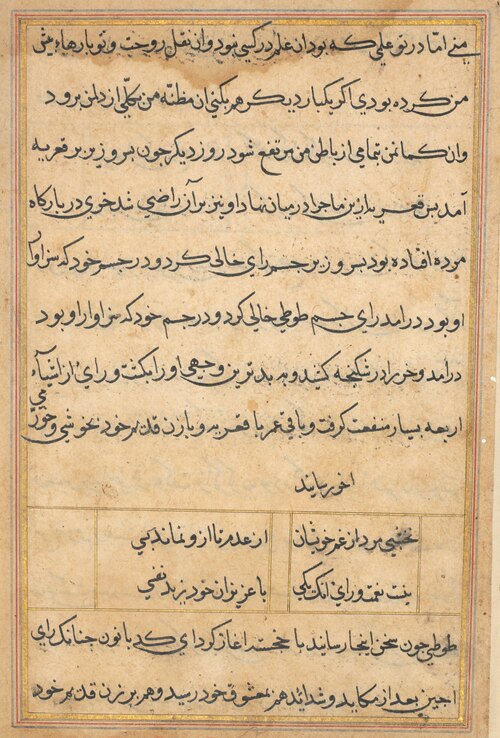 منی اما در تو علمی که بود آن علم در کسی نبود و آن نقل روحت و تو بارها پیش
من کرده بودی اگر یکبار دیگر هم بکنی آن مظنّه من بکلّی از دل من برود
و آن کمان من تمامی از باطن من مرتفع شود روز دیگر چون بر وزیر بر قعریه
آمد پس قعریه این ماجرا در میان نهاد او نیز بر آن راضی شد خری در بارکاه
مرده افتاده بود پس وزیر جسم رای خالی کرد و در جسم خود که سزاوار
او بود درامد رای جسم طوطی خالی کرد و در جسم خود که سزاوار او بود
درامد و خر را در شکنجه کشید و به بدترین وجهی او را بکشت و رای از اشیاء
اربعه بسیار منفعت کرفت و باقی عمر با قعریه و با زن قدیم خود بخوشی و خورمی
اخور سایند
نخشبی مرد از غم خوشان
از عدم نا ازو نماند پی
نیت نعمت ورای انک یکی
با عزیزان خود زید نفسی
طوطی چون سخن اینجا رسانید با خجسته اغاز کرد ای کدبانون چنانک رای
اجین بعد از مکاید و شداید هم بمعشوق خود رسید و هم بر زن قدیم خود